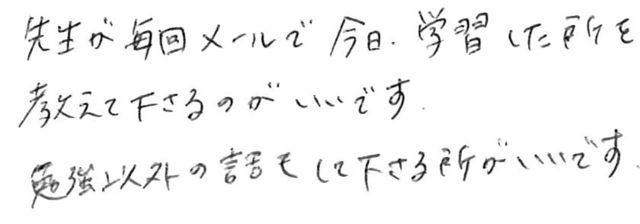 先生が毎回メールで今日、学習した所を
教えて下さるのがいいです。
勉強以外の話もして下さる所がいいです。